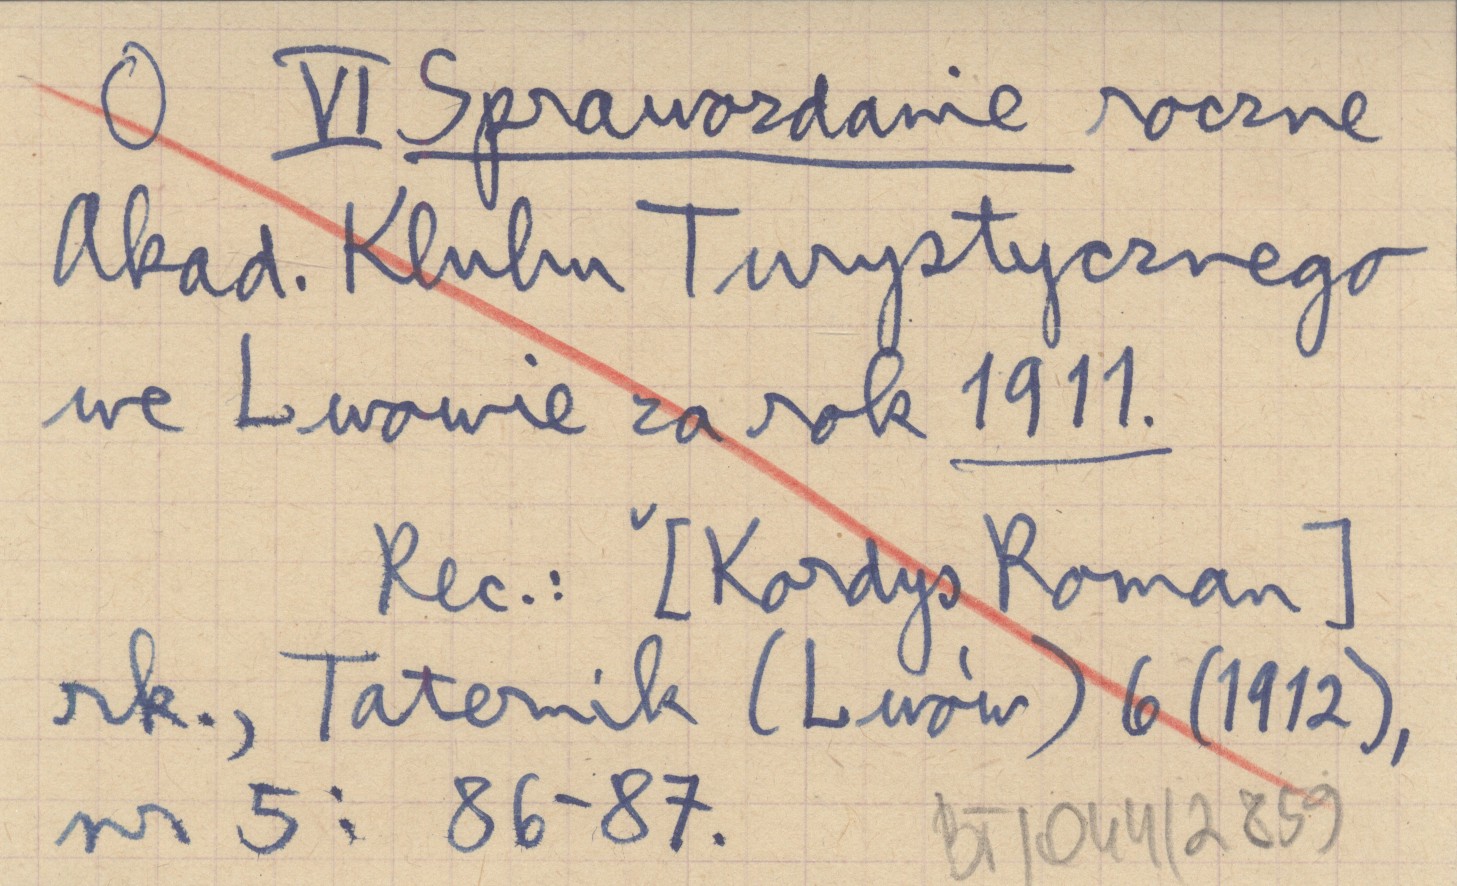 O VI Sprawozdanie roczne
Akad. Klubu Turystycznego
we Lwowie za rok 1911.
Rec.: ˇ[Kordys Roman]
rk., Taternik (Lwów) 6 (1912),
nr 5: 86-87.
BT/044/2859